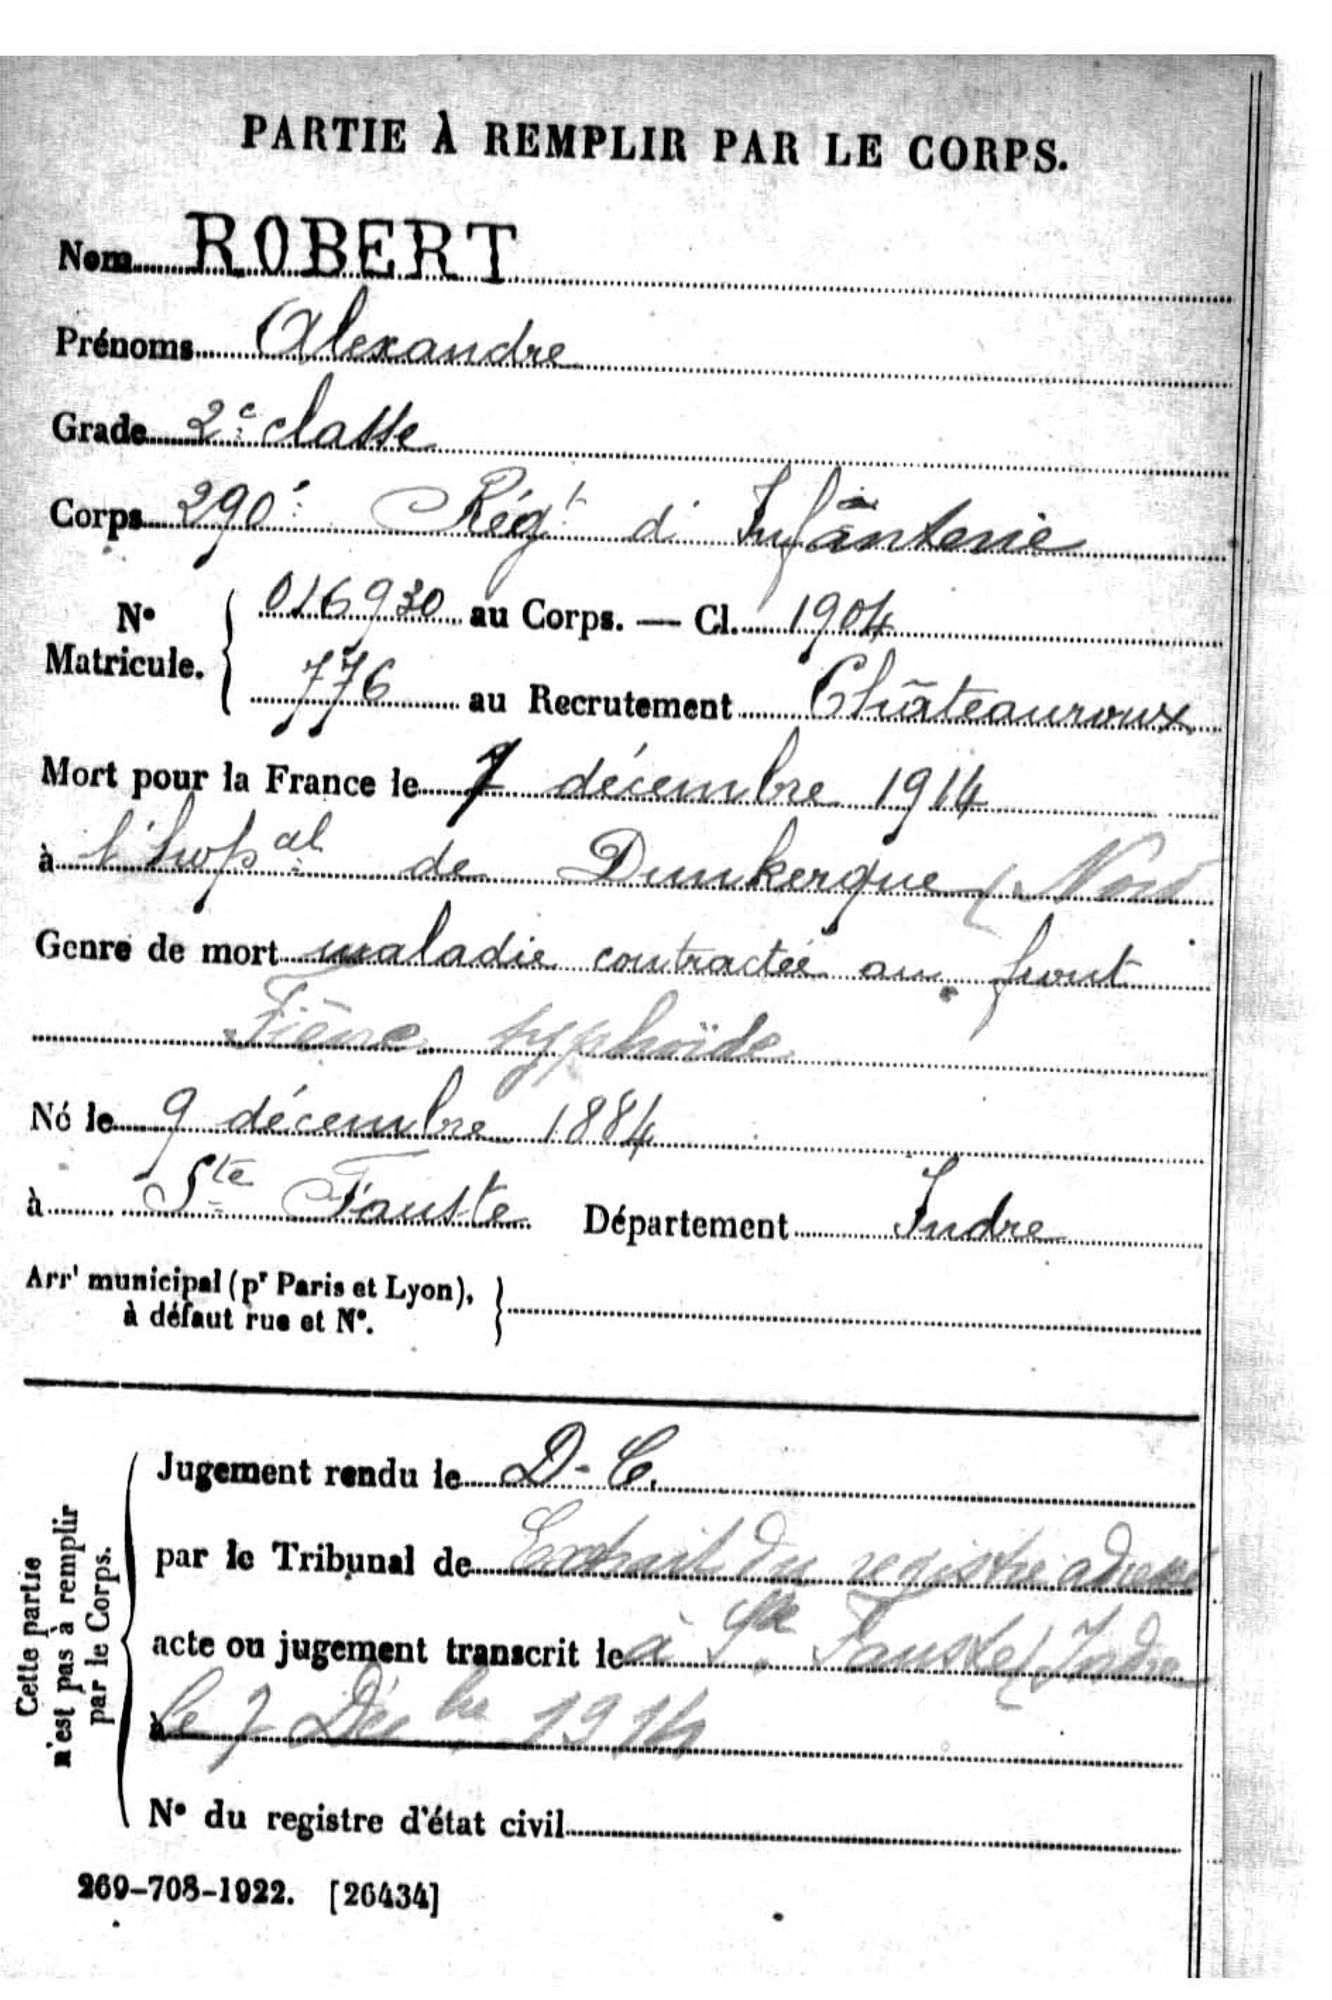 PARTIE À REMPLIR PAR LE CORPS.
Nom ROBERT
Prénoms Alexandre
Grade 2e classe
Corps 290e Régt d'Infanterie
N° Matricule. { 016930 au Corps. — Cl. 1904
776 au Recrutement Châteauroux
Mort pour la France le 7 décembre 1914
à l'hopal de Dunkerque (Nord
Genre de mort maladie contractée au front
Fièvre typhoïde
Né le 9 décembre 1884
à Ste Fauste Département Indre
Arrt municipal (pr Paris et Lyon),
à défaut rue et N°. }
Cette partie
n'est pas à remplir
par le Corps.
Jugement rendu le D.C.
par le Tribunal de Extrait du registre adressé
acte ou jugement transcrit le à Ste Fauste (Indre
à le 7 Décbre 1914
N° du registre d'état civil
269-708-1922. [26434]